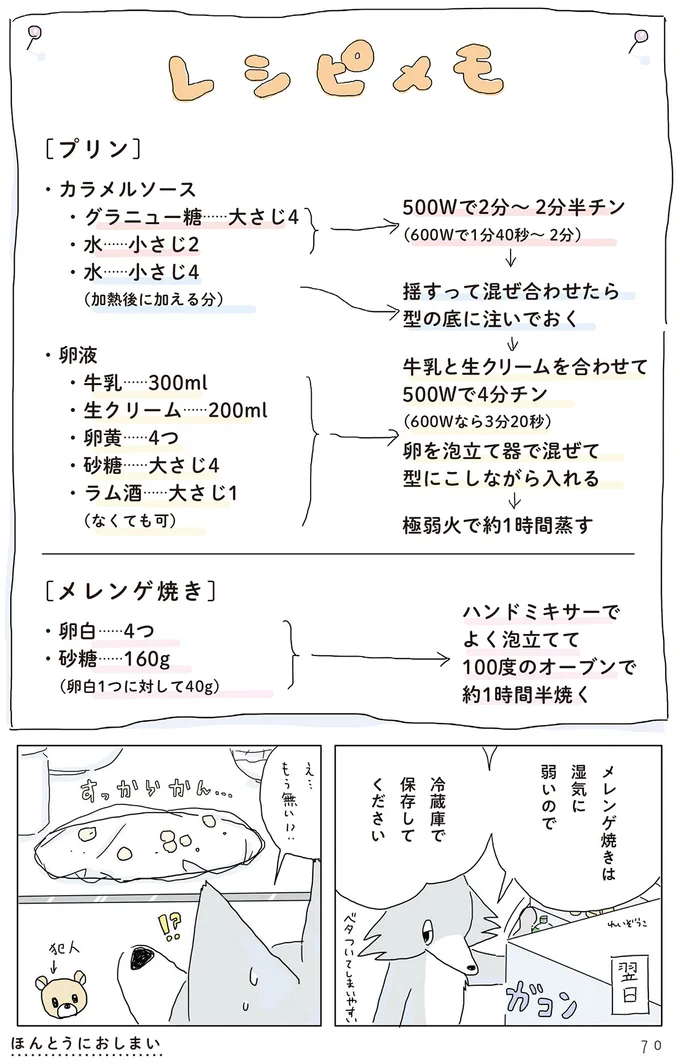 レシピメモ
[プリン]
・カラメルソース
・グラニュー糖……大さじ4
・水……小さじ2
・水……小さじ4
(加熱後に加える分)
500Wで2分〜2分半チン
(600Wで1分40秒〜2分)
揺すって混ぜ合わせたら
型の底に注いでおく
・卵液
・牛乳……300ml
・生クリーム……200ml
・卵黄……4つ
・砂糖……大さじ4
・ラム酒……大さじ1
(なくても可)
牛乳と生クリームを合わせて
500Wで4分チン
(600Wなら3分20秒)
卵を泡立て器で混ぜて
型にこしながら入れる
極弱火で約1時間蒸す
[メレンゲ焼き]
・卵白……4つ
・砂糖……160g
(卵白1つに対して40g)
ハンドミキサーで
よく泡立てて
100度のオーブンで
約1時間半焼く
メレンゲ焼きは
湿気に
弱いので
冷蔵庫で
保存して
ください
れいぞうこ
翌日
ガコン
ベタついてしまいやすい
え…
もう無い!?
すっからかん…
!?
犯人
ほんとうにおしまい
70